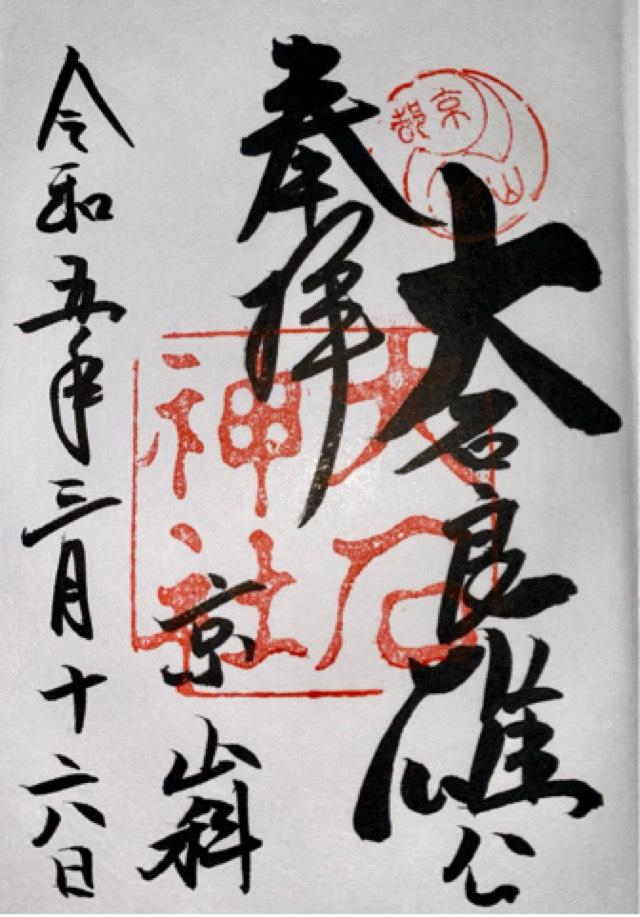 大石良雄公
奉拝
京
山科
令和五年三月十六日
京都
山科
大石
神社